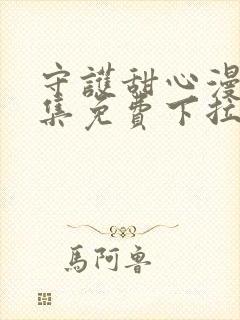 守護甜心漫
集免費下拉
馬阿魯